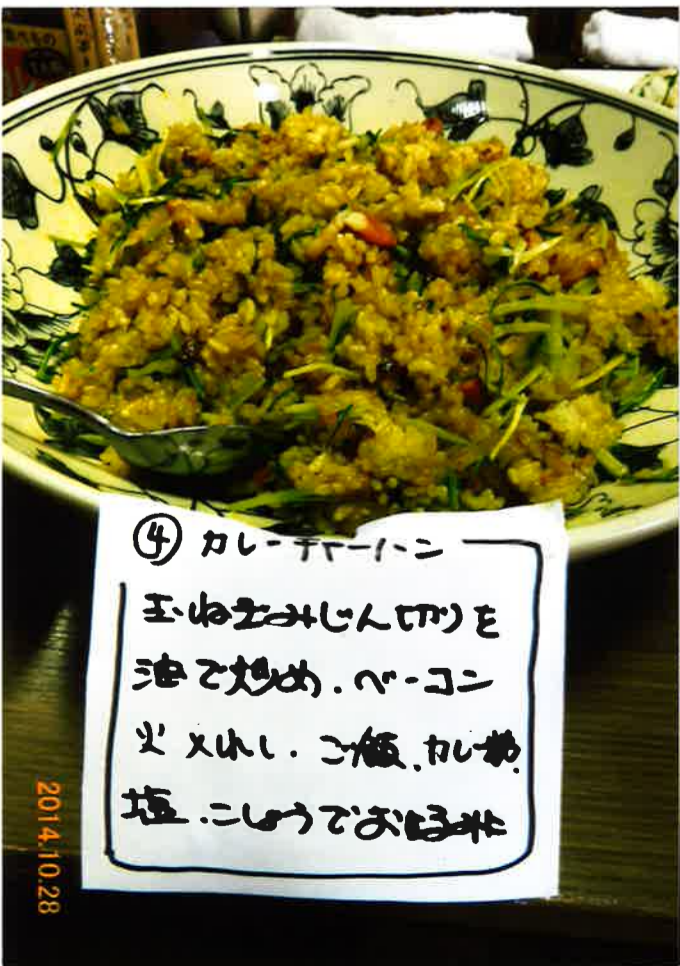 ④ カレーチャーハン
玉ねぎみじん切りを
油で炒め、ベーコン
火入れし、ご飯、カレー粉、
塩、こしょうで
2014.10.28